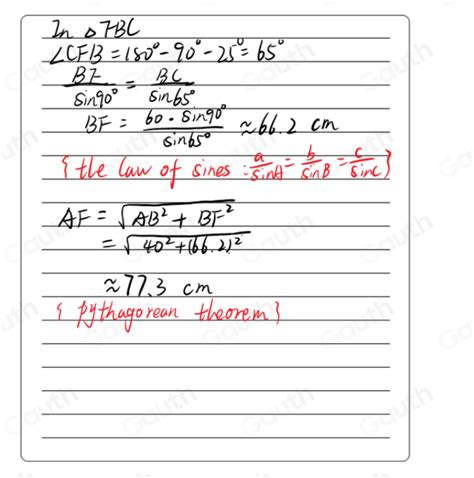 In △FBC
∠CFB = 180° - 90° - 25° = 65°
BF/sin90° = BC/sin65°
BF = 60·sin90°/sin65° ≈ 66.2 cm
{the law of sines: a/sinA = b/sinB = c/sinC}
AF = √AB² + BF²
= √40² + (66.2)²
≈ 77.3 cm
{pythagorean theorem}
Gauth